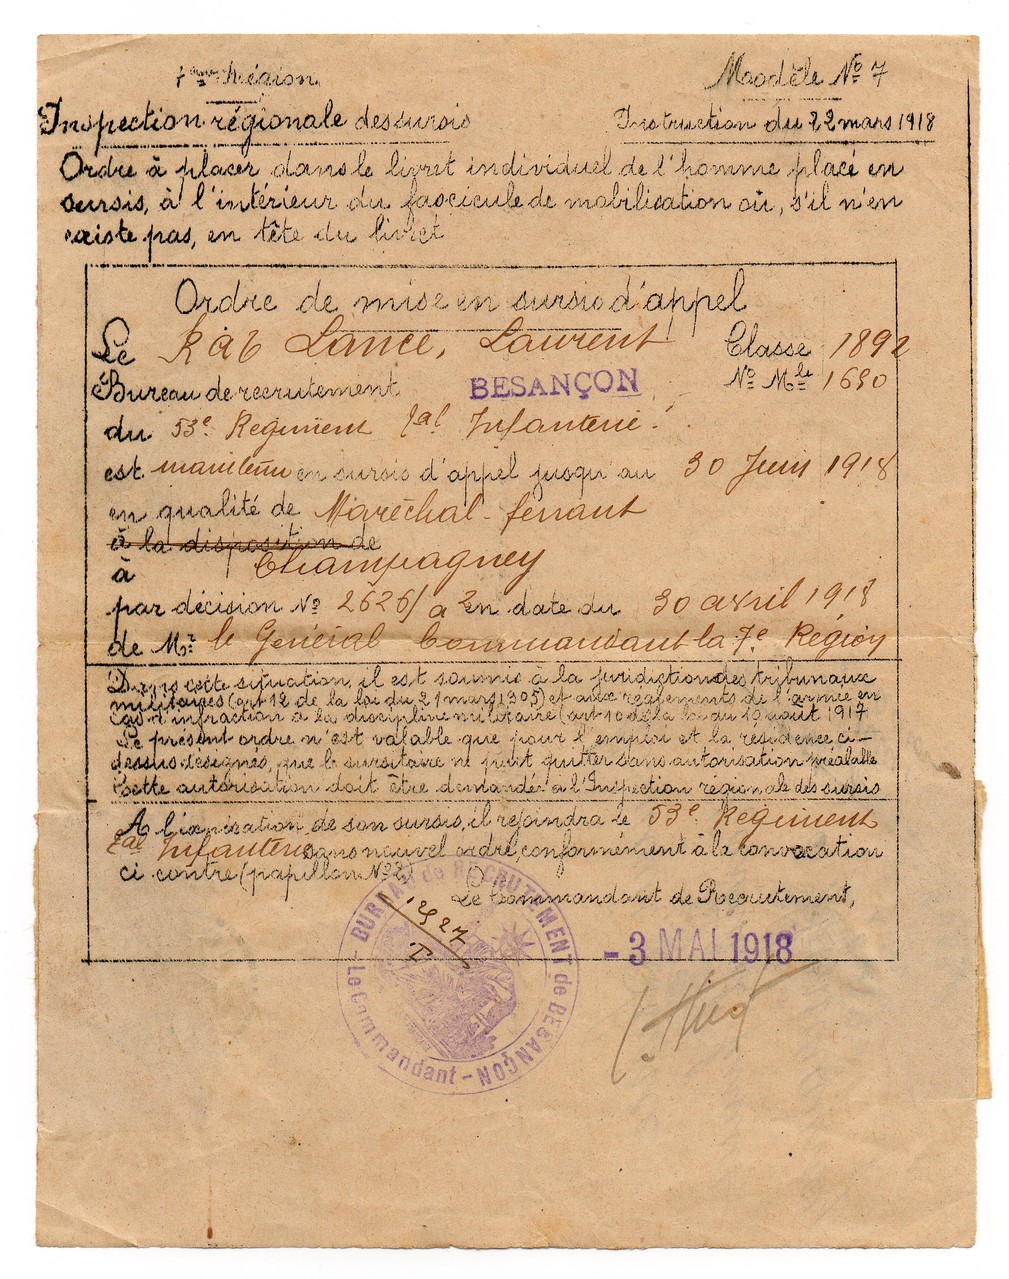 7ème Région
Modèle No 7
Inspection régionale des sursis
Instruction du 22 mars 1918
Ordre à placer dans le livret individuel de l'homme placé en
sursis, à l'intérieur du fascicule de mobilisation ou, s'il n'en
existe pas, en tête du livret
Ordre de mise en sursis d'appel
Le Lance, Laurent Classe 1892
Bureau de recrutement BESANÇON No Mle 1690
du 53e Régiment Tal Infanterie
est maintenu en sursis d'appel jusqu'au 30 Juin 1918
en qualité de Maréchal-ferrant
à la disposition de
à Champagney
par décision No 2626/a 2 en date du 30 avril 1918
de Mr le Général Commandant la 7e Région
Dans cette situation, il est soumis à la juridiction des tribunaux
militaires (art 12 de la loi du 21 mars 1905) et aux règlements de l'armée en
cas d'infraction à la discipline militaire (art 10 de la loi du 10 août 1917
Le présent ordre n'est valable que pour l'emploi et la résidence ci-
dessus désignés, que le sursitaire ne peut quitter sans autorisation préalable
Cette autorisation doit être demandée à l'Inspection régionale des sursis
A l'expiration de son sursis, il rejoindra le 53e Régiment
Tal Infanterie sans nouvel ordre, conformément à la convocation
ci contre (papillon No 2)
Le Commandant de Recrutement,
BUREAU de RECRUTEMENT de BESANÇON
- Le Commandant -
1927
I
- 3 MAI 1918